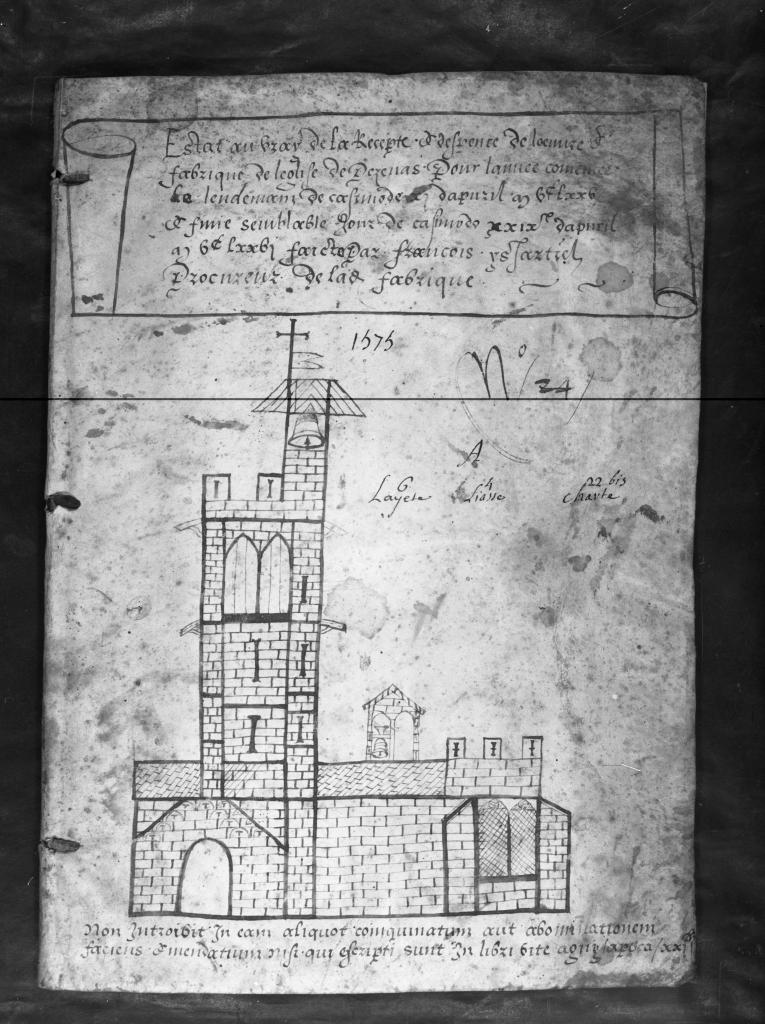 Estat au vray de la Recepte & despence de loeuvre &
fabrique de leglise de Pezenas pour lannee comencee
le lendemain de casimodo xj dapvril m vc lxxv
& finie semblable Jour de casimodo xxix dapvril
m vc lxxvj faicte par francois
Procureur de lad fabrique
1575
No 24
A
Layete 6 Liasse 4 Charte 22 bis
Non Introibit In eam aliquot coinquinatum aut abominationem
faciens & mendatium nisi qui escripti sunt In libri vite agnj apoca xxj